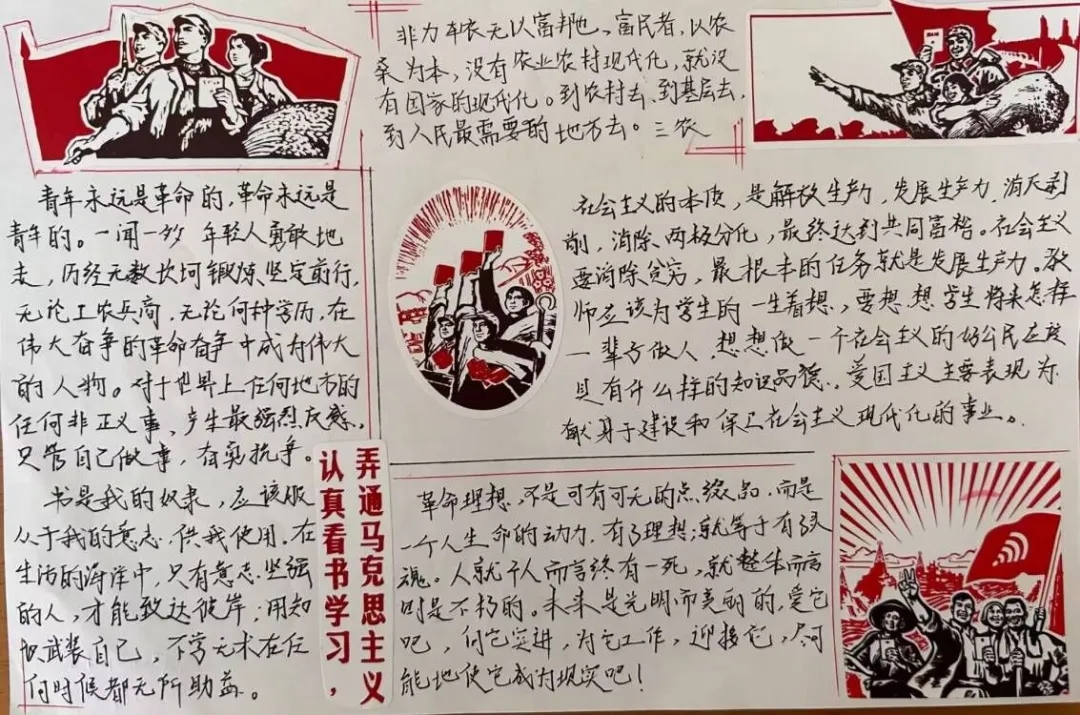 非力耕农无以富邦也，富民者，以农
桑为本，没有农业农村现代化，就没
有国家的现代化。到农村去、到基层去，
到人民最需要的地方去。三农
青年永远是革命的，革命永远是
青年的。一闻一多 年轻人勇敢地
走，历经无数坎坷锻炼、坚定前行，
无论工农兵商，无论何种学历，在
伟大奋争的革命奋争中成为伟大
的人物。对于世界上任何地方的
任何非正义事，产生最强烈反感。
只管自己做事，有勇抗争。
书是我的奴隶，应该服
从于我的意志，供我使用。在
生活的海洋中，只有意志坚强
的人，才能到达彼岸；用知
识武装自己，不学无术在任
何时候都无所助益。
弄通马克思主义
认真看书学习，
社会主义的本质，是解放生产力，发展生产力，消灭剥
削，消除两极分化，最终达到共同富裕。社会主义
要消除贫穷，最根本的任务就是发展生产力。教
师应该为学生的一生着想，要想想学生将来怎样
一辈子做人，想想做一个社会主义的好公民应该
具有什么样的知识品德。爱国主义主要表现为
献身于建设和保卫社会主义现代化的事业。
革命理想，不是可有可无的点缀品，而是
一个人生命的动力，有了理想；就等于有了灵
魂。人就个人而言终有一死，就整体而言
则是不朽的。未来是光明而美丽的，爱它
吧，向它突进，为它工作，迎接它，尽可
能地使它成为现实吧！